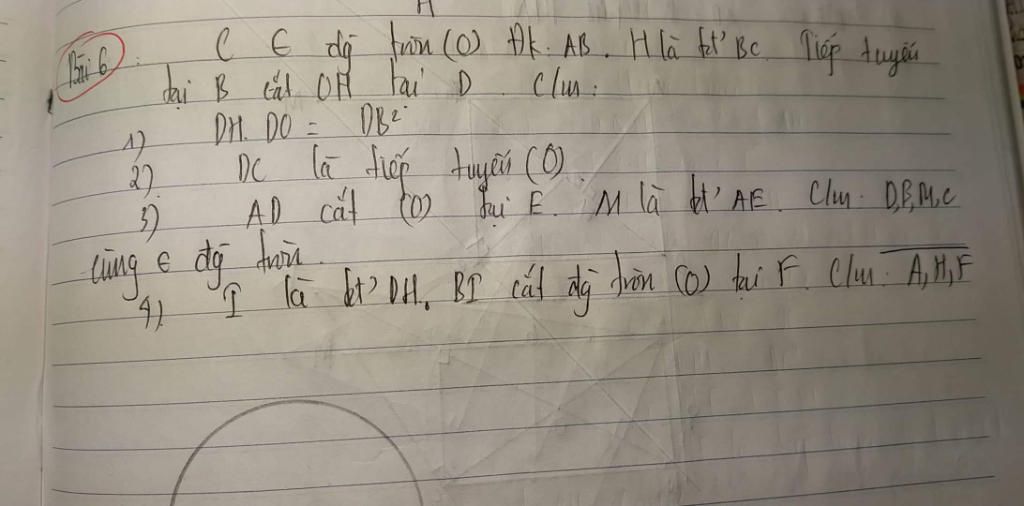 Bài 6: C ∈ đg̃ tròn (O) Đk: AB. H là tđ' BC. Tiếp tuyến
tại B cắt OH tại D. C/m:
1) DH. DO = DB²
2) DC là tiếp tuyến (O).
3) AD cắt (O) tại E. M là tđ' AE. C/m: D,B,M,C
cùng ∈ đg̃ tròn.
4) I là tđ' DH. BI cắt đg̃ tròn (O) tại F. C/m: A,H,F